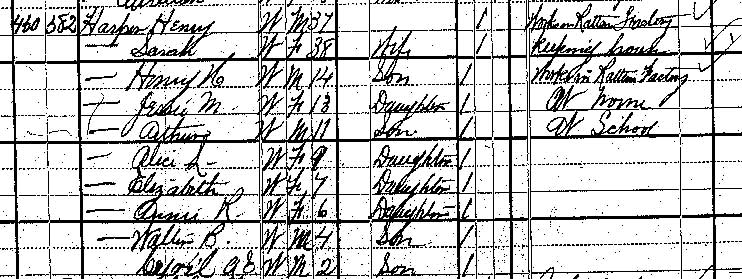 460 582 Harper Henry W M 37 1 Works in Rattan Factory
— Sarah W F 38 Wife 1 Keeping house
— Henry W M 14 Son 1 Works in Rattan Factory
— Jessie M. W F 13 Daughter 1 At home
— Arthur W M 11 Son 1 At School
— Alice L W F 9 Daughter 1
— Elizabeth W F 7 Daughter 1
— Annie R W F 6 Daughter 1
— Walter B. W M 4 Son 1
W M 2 Son 1